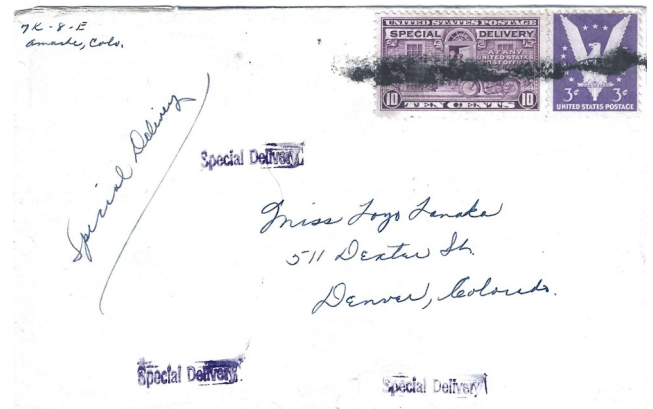 7K-8-E
Amache, Colo.
UNITED STATES POSTAGE
SPECIAL DELIVERY
AT ANY
UNITED STATES
POST OFFICE
10 10
TEN CENTS
3¢ 3¢
UNITED STATES POSTAGE
Special Delivery
Special Delivery
Miss Toyo Tanaka
511 Dexter St.
Denver, Colorado.
Special Delivery
Special Delivery